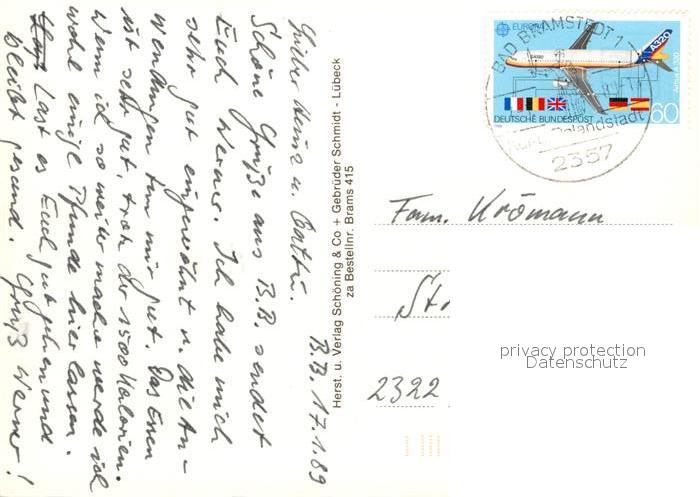 B.B. 17.1.89
Lieber Heinz u.
Schöne Grüße aus B.B. sendet
Euch Werner. Ich habe mich
sehr gut eingewöhnt u. die An-
wendungen tun mir gut. Das Essen
ist sehr gut, trotz der 1500 Kalorien.
Wenn ich so weiter mache werde ich
wohl einige Pfunde hier lassen.
Last es Euch gut gehen und
bleibt gesund. Gruß Werner!
Herst. u. Verlag Schöning & Co + Gebrüder Schmidt - Lübeck
za Bestellnr. Brams 415
EUROPA
A320
Airbus A320
DEUTSCHE BUNDESPOST
60
BAD BRAMSTEDT 1
Rolandstadt
2357
Fam. Krömann
St
2322
privacy protection
Datenschutz